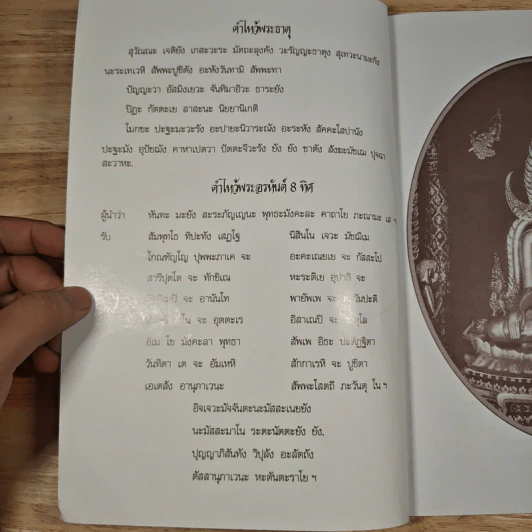 คำไหว้พระธาตุ
สุวัณณะ เจติยัง เกสะวะระ มัตถะลุงคัง วะรัญญะธาตุง สุเทวะนามะกัง
นะระเทเวหิ สัพพะปูชิตัง อะหังวันทามิ สัพพะทา
ปัญญะวา อัสมิงเยวะ จันทิมาอิวะ ธาระยัง
ปิฏะ กัตตะเย ลาสะนะ นิยยานิเกติ
โมกขะ ปะฐะมะวะรัง อะปายะนิวาระณัง อะระหัง สัคคะโสปานัง
ปะฐะมัง อุปัชฌัง คาหาเปตวา ปัตตะจีวะรัง ยัง ยัง ชาตัง สังฆะมัชเฌ ปุจฉา
สะวาหะ.
คำไหว้พระอรหันต์ 8 ทิศ
ผู้นำว่า หันทะ มะยัง สะระภัญเญนะ พุทธะมังคะละ คาถาโย ภะณามะ เส ฯ
รับ สัมพุทโธ ทิปะทัง เสฏโฐ นิสินโน เจวะ มัชฌิเม
โกณฑัญโญ ปุพพะภาเค จะ อะคะเณยเย จะ กัสสะโป
สารีปุตโต จะ ทักขิเณ หะระติเย อุปาลี จะ
จะ อานันโท พายัพเพ จะ
จะ อุตตะเร อิสาเณปิ จะ
อิเม โข มังคะลา พุทธา สัพเพ อิธะ ปะติฏฐิตา
วันทิตา เต จะ อัมเหหิ สักกาเรหิ จะ ปูชิตา
เอเตสัง อานุภาเวนะ สัพพะโสตถี ภะวันตุ โน ฯ
อิจเจวะมัจจันตะนะมัสสะเนยยัง
นะมัสสะมาโน ระตะนัตตะยัง ยัง,
ปุญญาภิสันทัง วิปุลัง อะลัตถัง
ตัสสานุภาเวนะ หะตันตะราโย ฯ